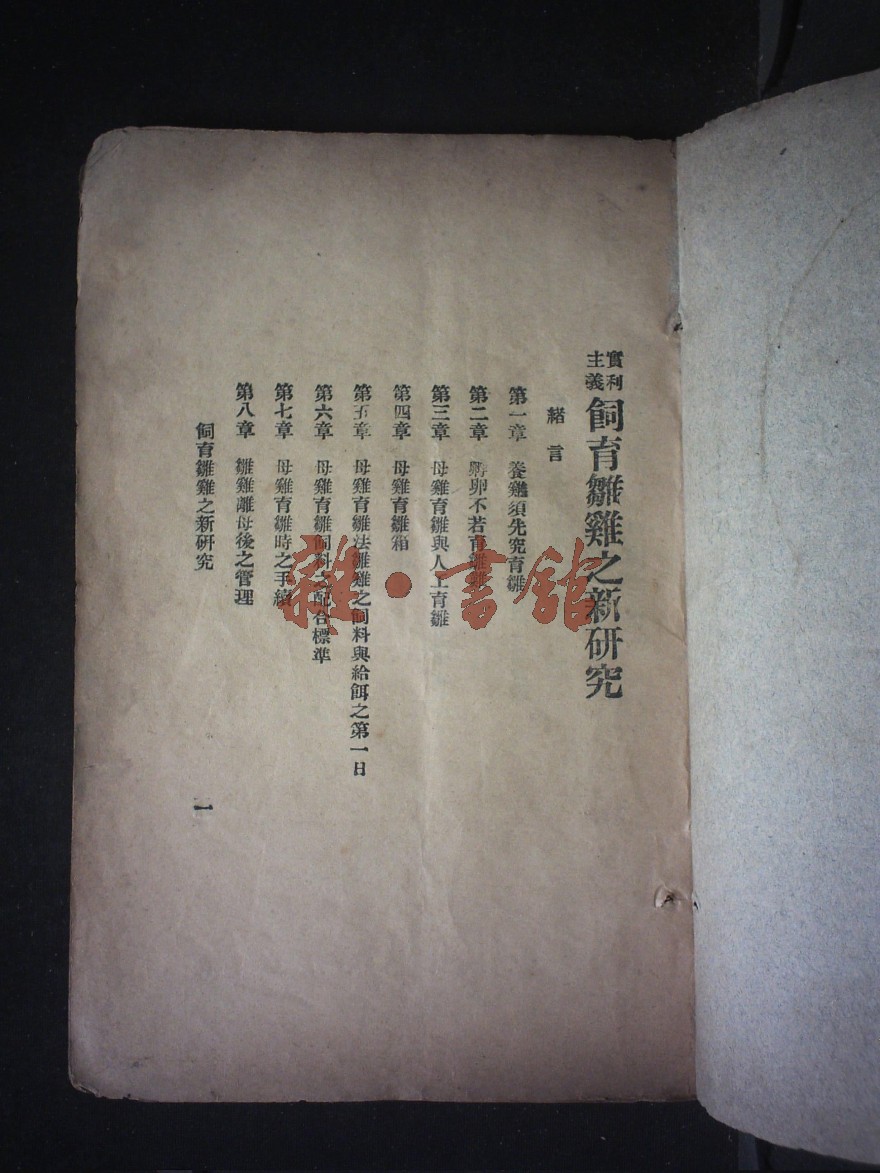 實利主義 飼育雛雞之新研究
緒言
第一章 養雞須先究育雛
第二章 孵卵不若育雛難
第三章 母雞育雛與人工育雛
第四章 母雞育雛箱
第五章 母雞育雛法雛雞之飼料與給餌之第一日
第六章 母雞育雛飼料之配合標準
第七章 母雞育雛時之手續
第八章 雛雞離母後之管理
飼育雛雞之新研究
一
雜·書館